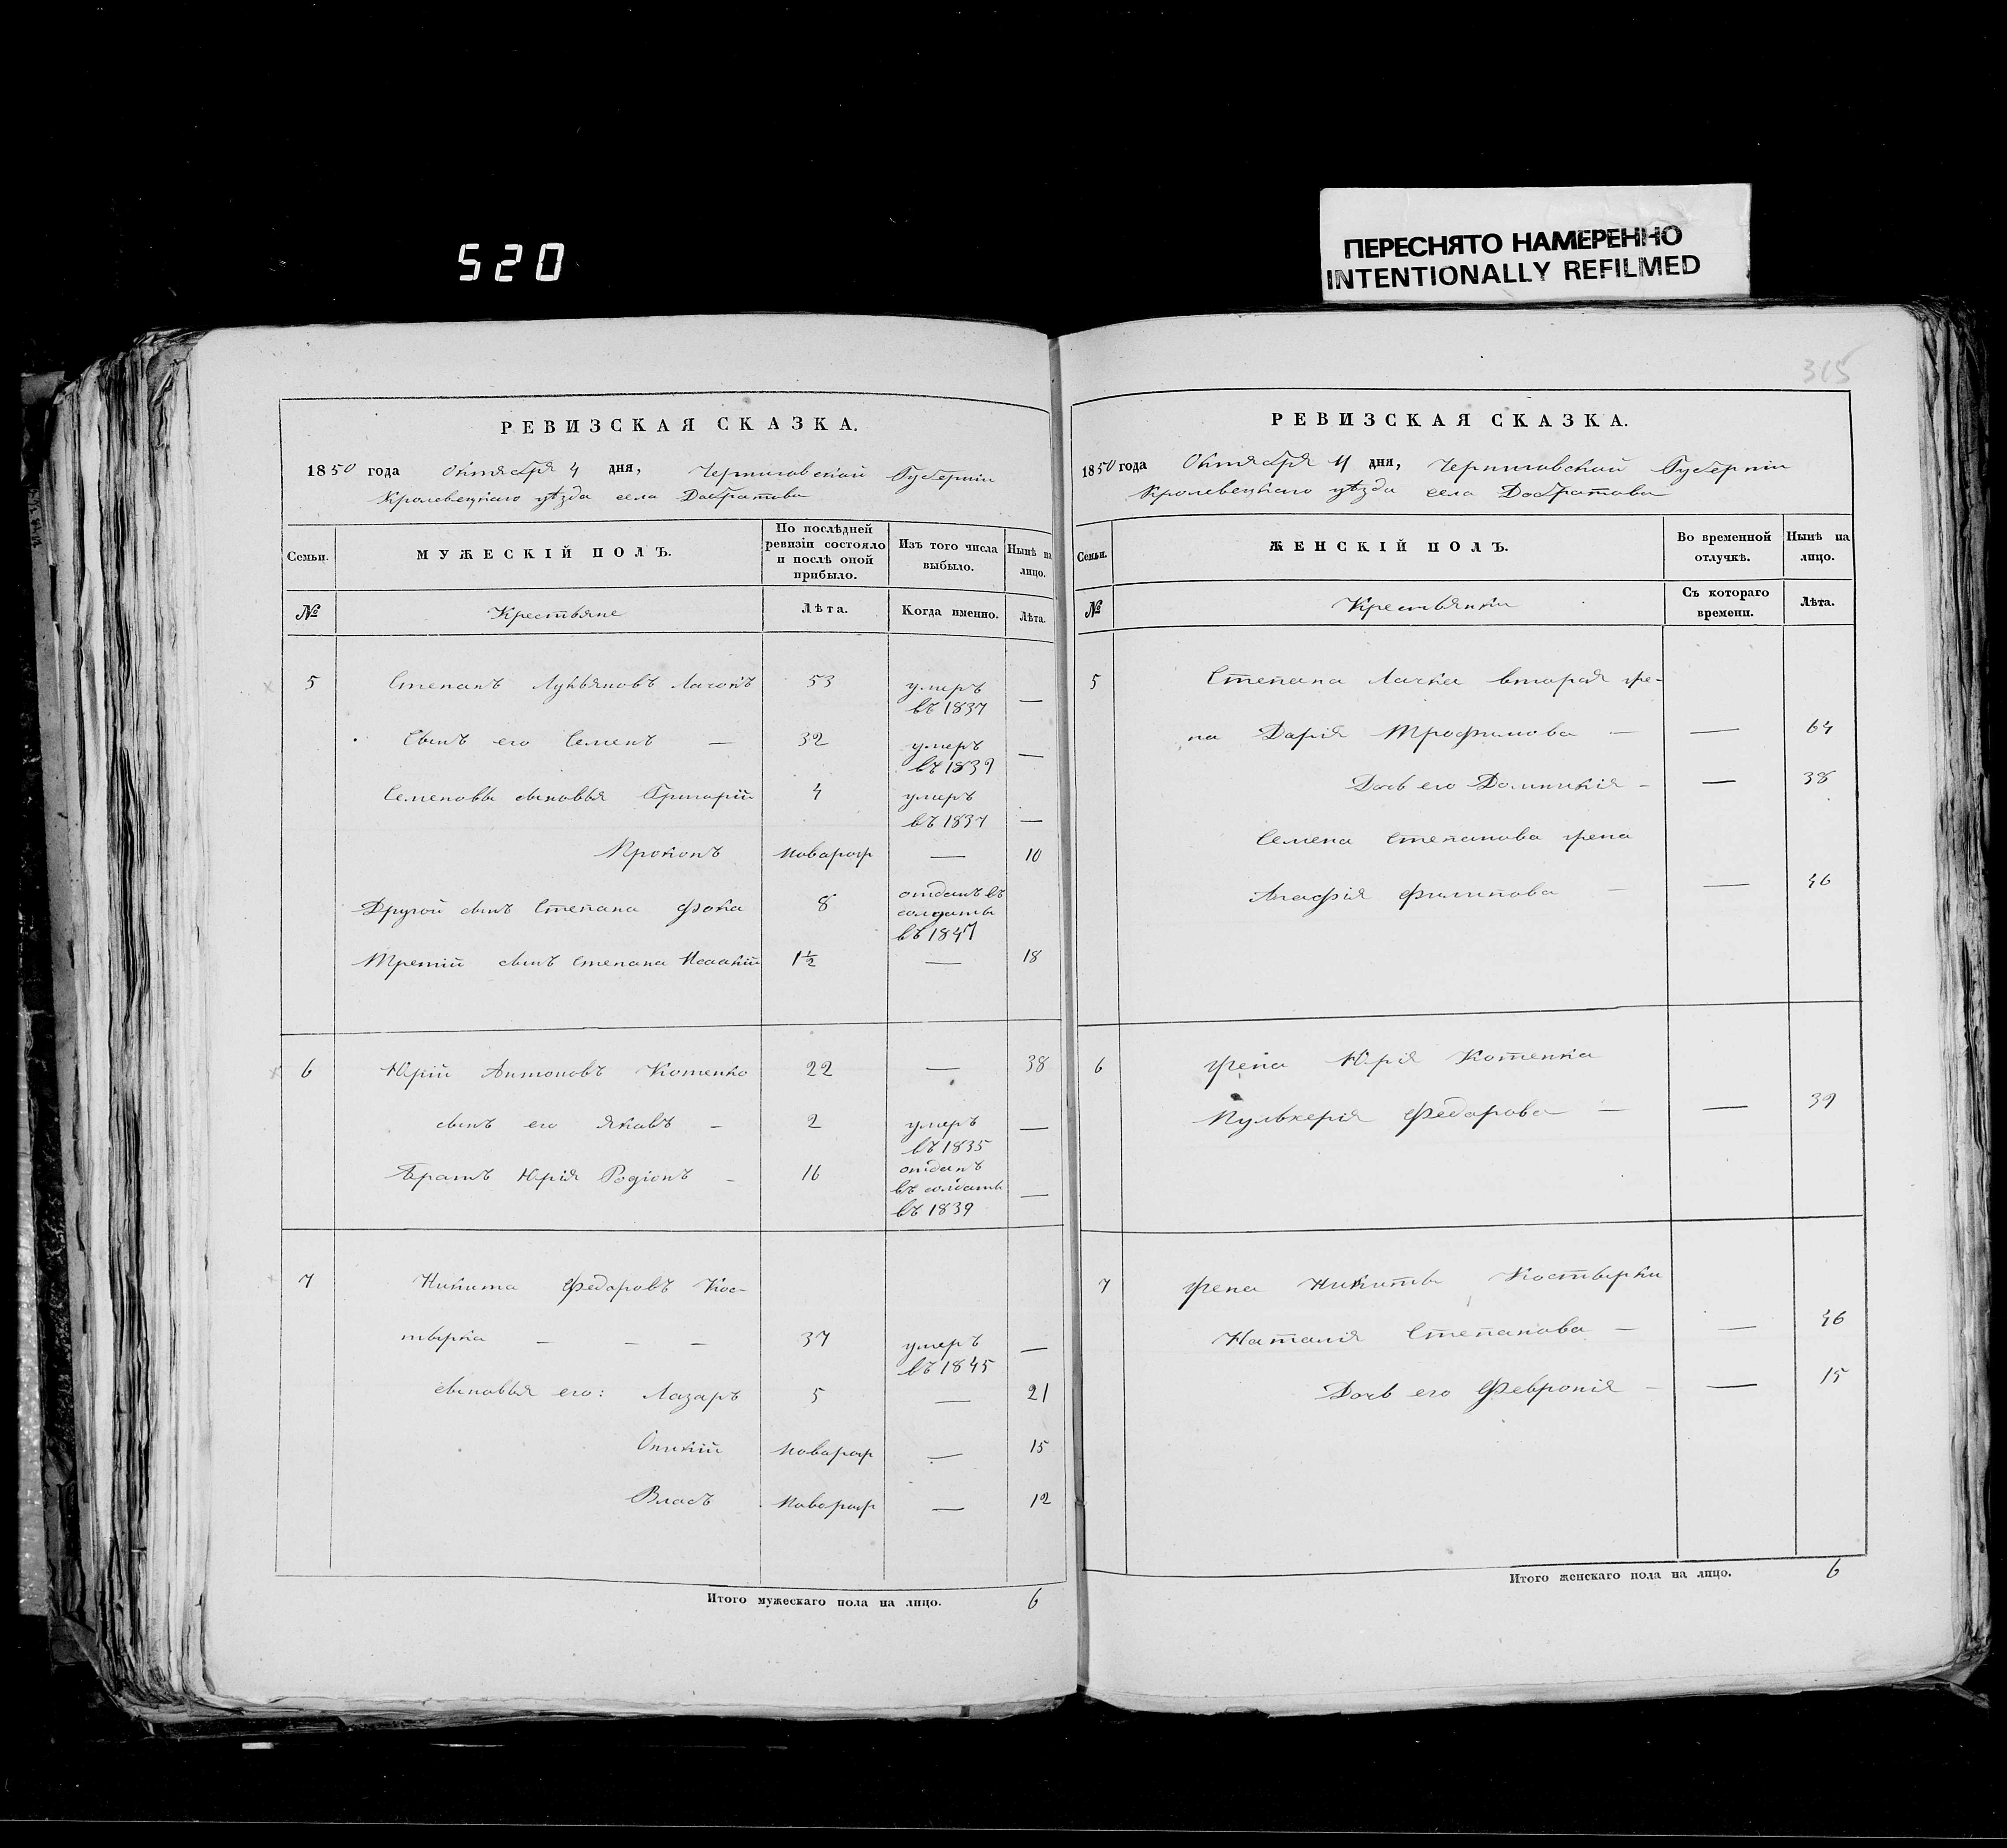 520
ПЕРЕСНЯТО НАМЕРЕННО
INTENTIONALLY REFILMED
315
РЕВИЗСКАЯ СКАЗКА.
1850 года Октября 4 дня, Черниговской Губерніи
Кролевецкаго уѣзда села Добратова
Семьи. МУЖЕСКІЙ ПОЛЪ. По послѣдней ревизіи состояло и послѣ оной прибыло. Изъ того числа выбыло. Нынѣ на лицо.
№ Крестьяне Лѣта. Когда именно. Лѣта.
5 Степанъ Лукьяновъ Лачокъ 53 умеръ въ 1837 —
Сынъ его Семенъ — 32 умеръ въ 1839 —
Семеновы сыновья Григорій 4 умеръ въ 1837 —
Прокопъ новорож — 10
Другой сынъ Степана Фока 8 отданъ въ солдаты въ 1847
Третій сынъ Степана Исаакій 1½ — 18
6 Юрій Антоновъ Котенко 22 — 38
сынъ его Яковъ — 2 умеръ въ 1835 —
Братъ Юрія Родіонъ — 16 отданъ въ солдаты въ 1839 —
7 Никита Федоровъ Кос-
тырка — — — 37 умеръ въ 1845 —
сыновья его: Лазаръ 5 — 21
Оникій новорож — 15
Власъ новорож — 12
Итого мужескаго пола на лицо. 6
РЕВИЗСКАЯ СКАЗКА.
1850 года Октября 4 дня, Черниговской Губерніи
Кролевецкаго уѣзда села Добратова
Семьи. ЖЕНСКІЙ ПОЛЪ. Во временной отлучкѣ. Нынѣ на лицо.
№ Крестьянки Съ котораго времени. Лѣта.
5 Степана Лачка вторая же-
на Дарія Трофимова — — 64
Дочь его Доминикія — — 38
Семена Степанова жена
Агафія Филипова — — 46
6 жена Юрія Котенка
Пульхерія Федорова — — 39
7 жена Никиты Костырки
Наталія Степанова — — 46
Дочь его Февронія — — 15
Итого женскаго пола на лицо. 6